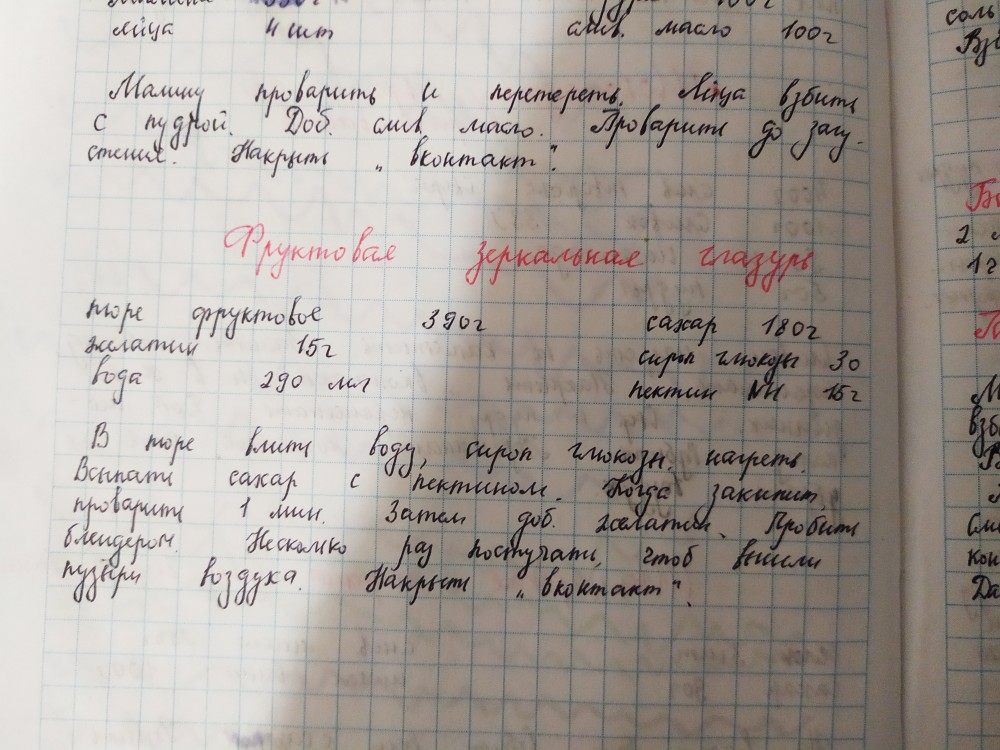 яйца 4 шт слив. масло 100г
Малину проварить и перетереть. Яйца взбить
с пудрой. Доб. слив. масло. Проварить до загу-
стения. Накрыть „вконтакт".
Фруктовая зеркальная глазурь
пюре фруктовое 390г сахар 180г
желатин 15г сироп глюкозы 30
вода 290 мл пектин NH 15г
В пюре влить воду, сироп глюкозн. нагреть.
Всыпать сахар с пектином. Когда закипит,
проварить 1 мин. Затем доб. желатин. Пробить
блендером. Несколько раз постучать, чтоб вышли
пузыри воздуха. Накрыть „вконтакт".
соль
2
1г
взб
кон
Да